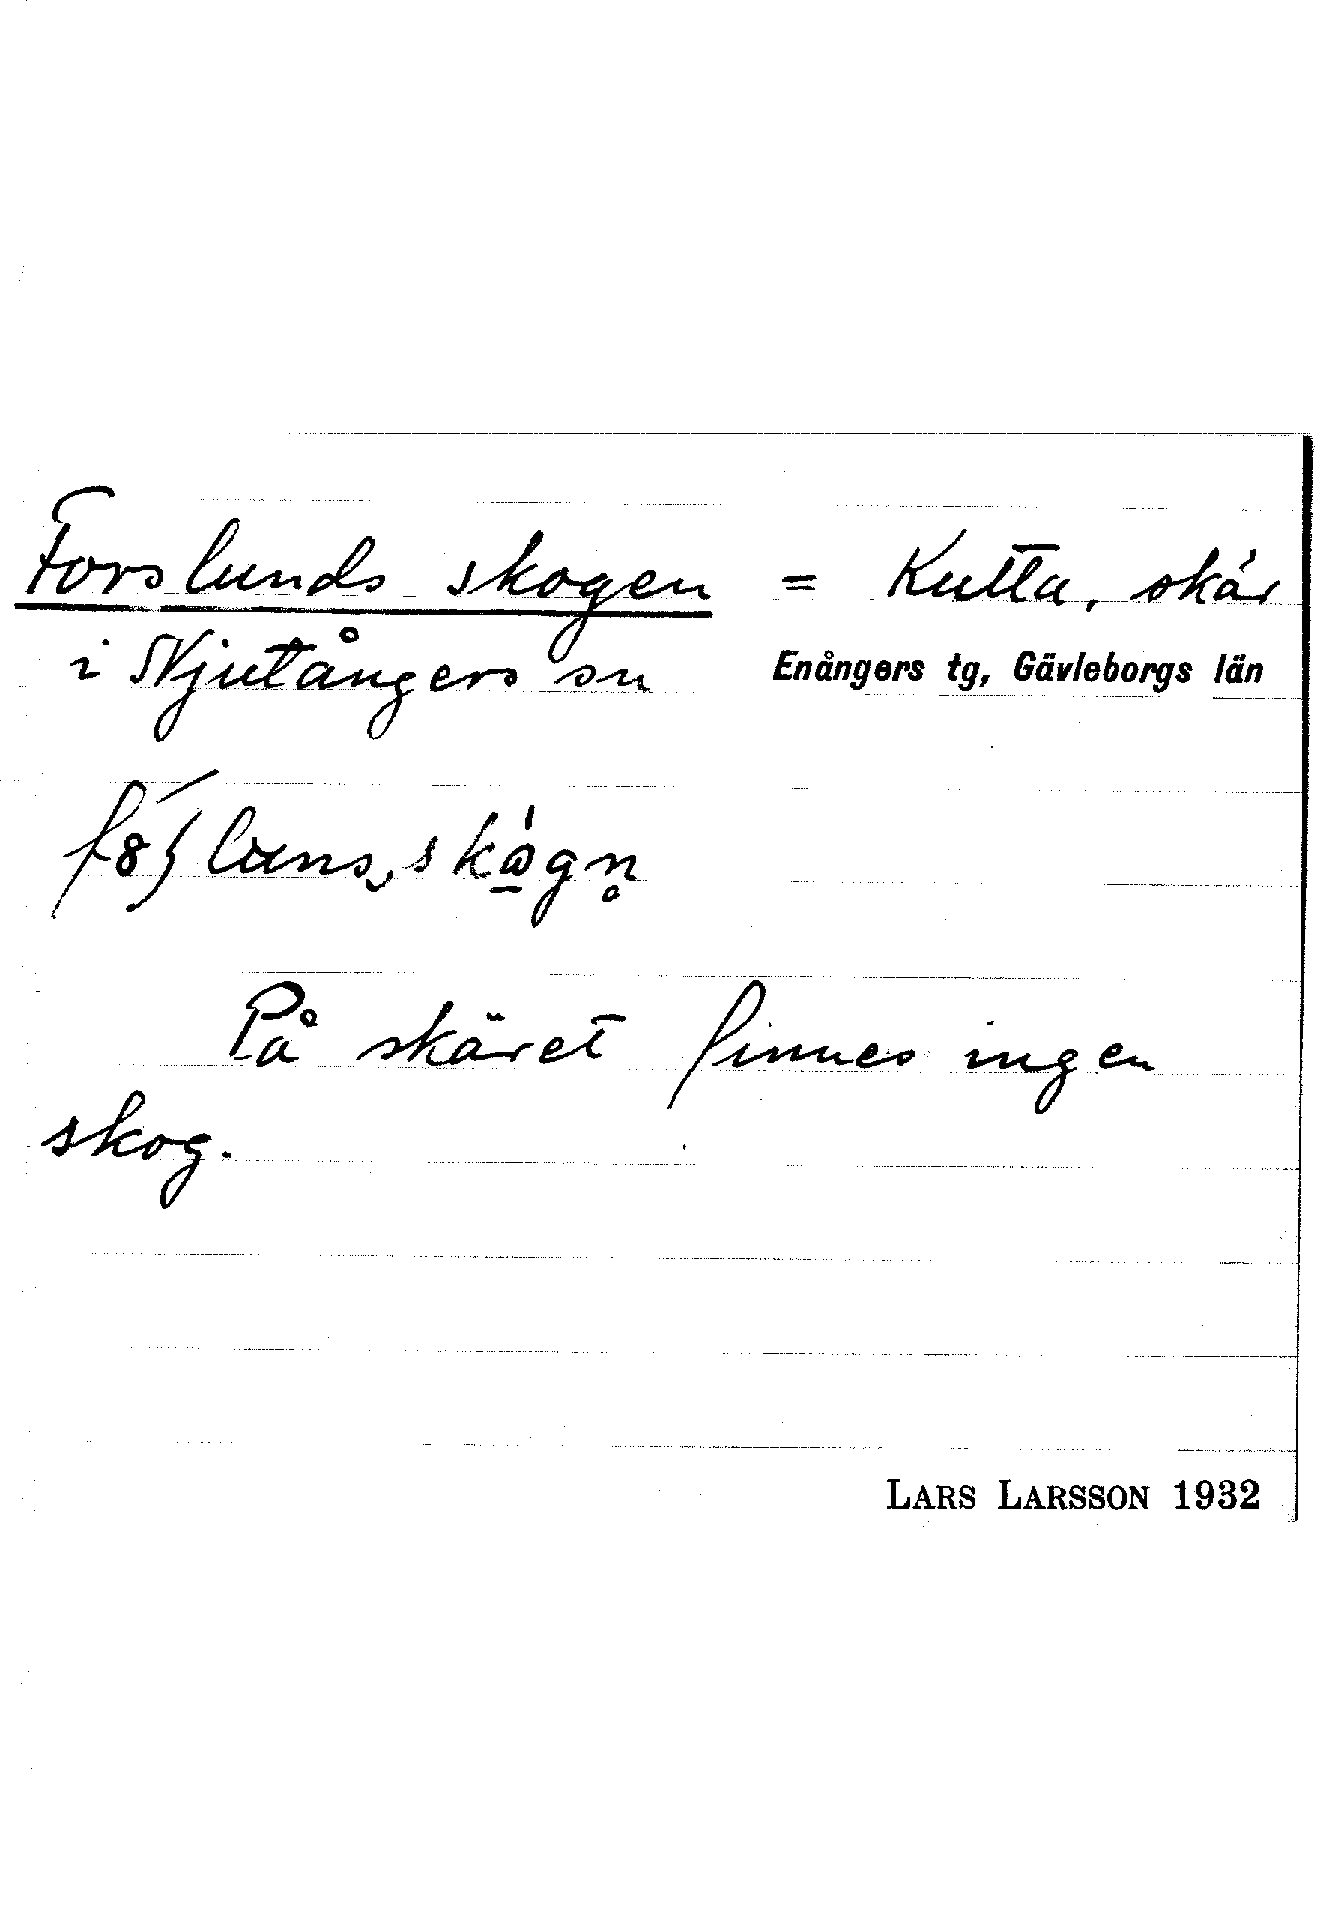 Forslunds skogen = Kutta, skär
i Njutångers sn Enångers tg, Gävleborgs län
På skäret finnes ingen
skog.
LARS LARSSON 1932